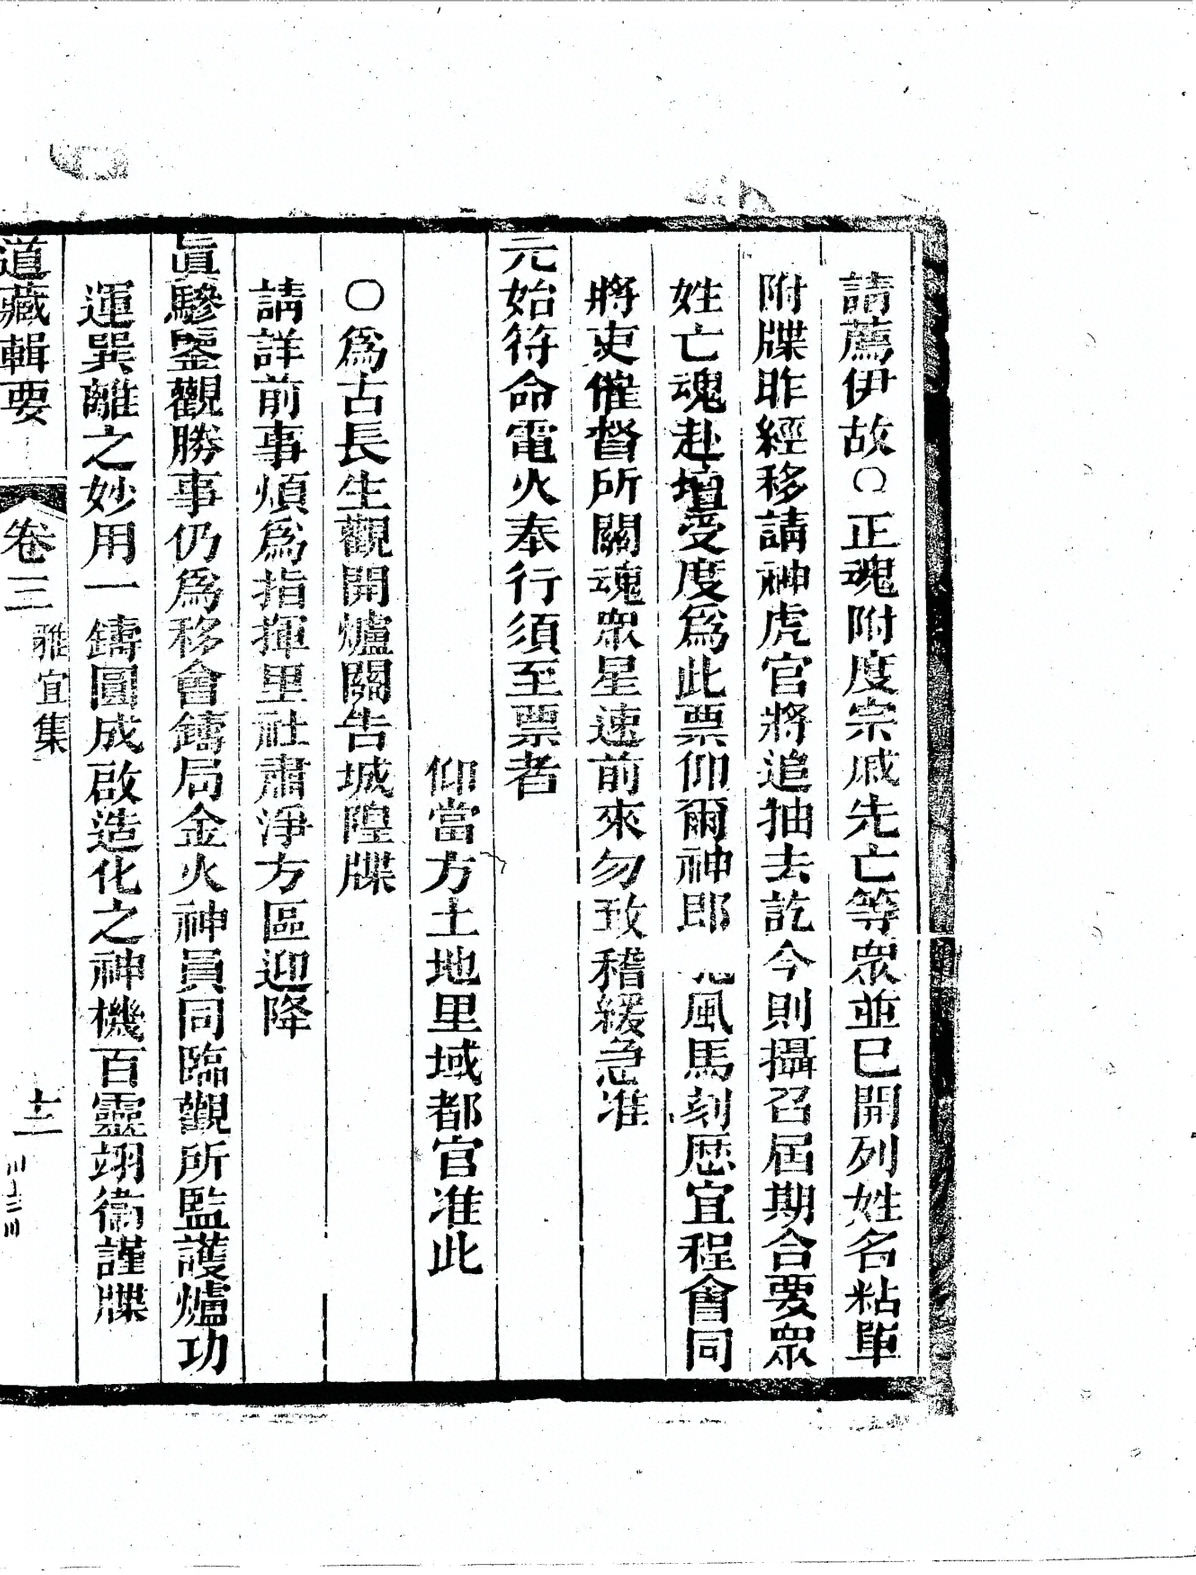 請薦伊故○正魂附度宗戚先亡等衆並已開列姓名粘單
附牒昨經移請神虎官將追抽去訖今則攝召屆期合要衆
姓亡魂赴壇受度爲此票仰爾神郎風馬刻歷宜程會同
將吏催督所關魂衆星速前來勿致稽緩急准
元始符命電火奉行須至票者
仰當方土地里域都官准此
○爲古長生觀開爐關告城隍牒
請詳前事煩爲指揮里社肅淨方區迎降
眞驂鑒觀勝事仍爲移會鑄局金火神員同臨觀所監護爐功
運巽離之妙用一鑄圓成啟造化之神機百靈翊衞謹牒
道藏輯要
卷三
雅宜集
十三